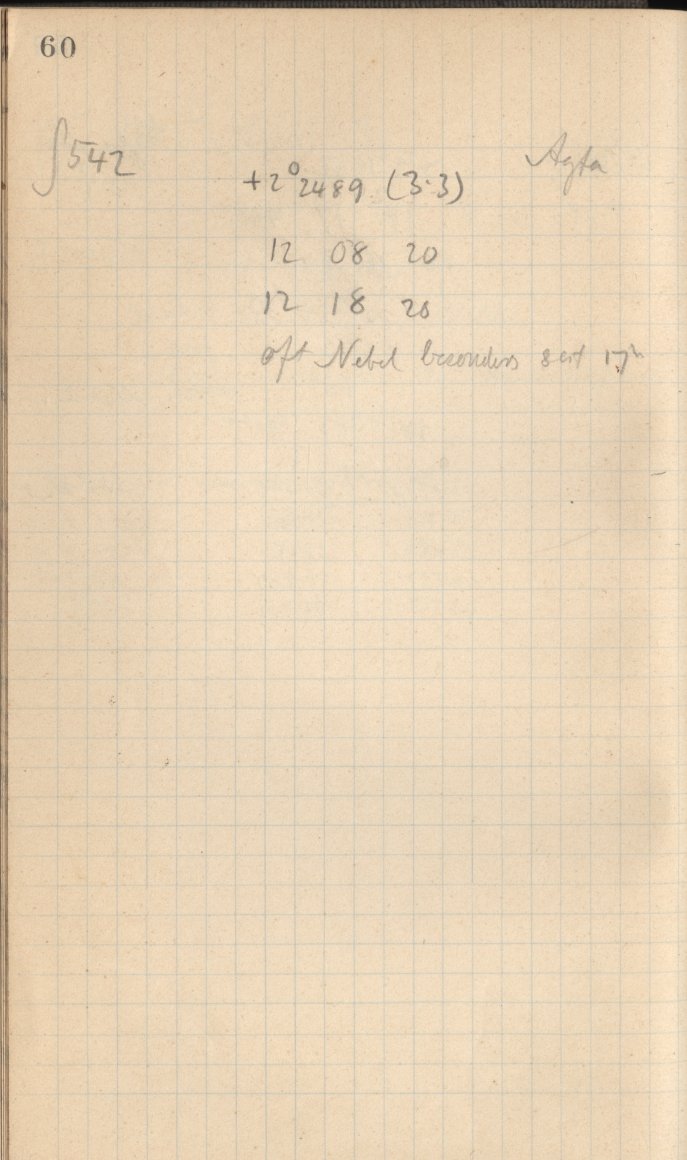 60
∫542 +2°2489 (3.3) Agfa
12 08 20
12 18 20
oft Nebel besonders seit 17h